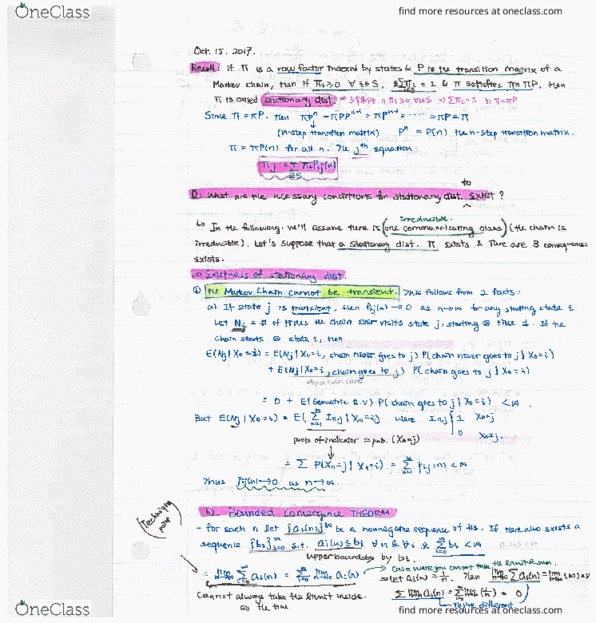 OneClass
find more resources at oneclass.com
Oct. 15. 2017.
Recall: if π is a row factor indexed by states & P is the transition matrix of a
Markov chain, then if πi ≥ 0 ∀ i∈S, Σπi = 1 & π satisfies π = πP, then
π is called stationary dist.
Since π = πP. then πPⁿ = πPPⁿ⁻¹ = πPⁿ⁻¹ = ... = πP = π
(n-step transition matrix) Pⁿ = P(n) the n-step transition matrix.
π = πP(n) for all n. The jth equation
πj = Σ πi Pij(n)
i∈S
Q: What are the necessary conditions for stationary dist. to exist?
irreducible.
↳ In the following, we'll assume there is (one communicating class) (the chain is
irreducible). Let's suppose that a stationary dist. π exists & there are 3 consequences
exists.
Existness of stationary dist.
① the Markov Chain cannot be transient. This follows from 2 facts:
a) If state j is transient, then Pij(n) → 0 as n→∞ for any starting state i
Let Nj = # of times the chain ever visits state j, starting @ time 1. If the
chain starts @ state i, then
E(Nj | X0=i) = E(Nj | X0=i, chain never goes to j) P(chain never goes to j | X0=i)
+ E(Nj | X0=i, chain goes to j) P(chain goes to j | X0=i)
= 0 + E(Geometric R.V) P(chain goes to j | X0=i) < ∞
But E(Nj | X0=i) = E(Σ In,j | X0=i) where In,j { 1 Xn=j
0 Xn≠j.
= Σ P(Xn=j | X0=i) = Σ Pij(n) < ∞
Thus Pij(n) → 0 as n→∞.
b). Bounded Convergence THEOREM
(Technical part)
- for each n let {ai(n)} be a nonnegative sequence of #s. If there also exists a
sequence {bi} s.t. ai(n) ≤ bi ∀ n & ∀ i & Σ bi < ∞
upper bounded by bi.
lim Σ ai(n) = Σ lim ai(n)
Case where you cannot take the limit
let ai(n) = 1/n. Then lim Σ ai(n) = lim
Σ lim ai(n) = Σ lim (1/n) = 0
Cannot always take the limit inside.
different
OneClass
find more resources at oneclass.com